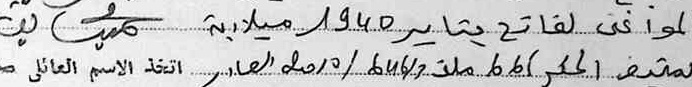 لموافق لفاتح يناير 1940 ميلادية
بمقتضى الحكم 66 ملف 646/2010 الصادر اتخذ الاسم العائلي